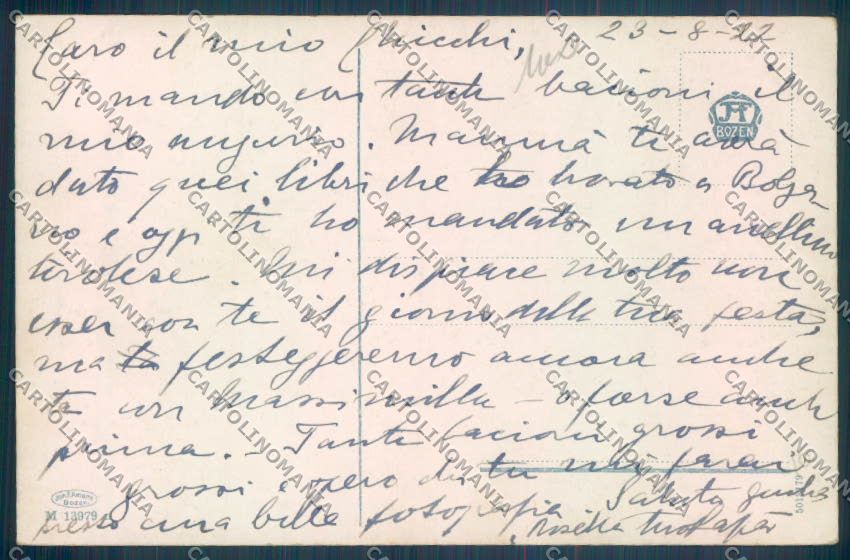 23-8-22
Caro il mio Chicchi,
Ti mando con tanti bacioni il
mio augurio. Mammà ti avrà
dato quei libri che ho trovato a Bolza-
no e oggi ti ho mandato un anellino
tirolese. Mi dispiace molto non
esser con te il giorno della tua festa,
ma festeggeremo ancora anche
te con Massimilla - o forse anche
prima. - Tanti bacioni grossi
grossi e spero che tu mi farai
presto una bella fotografia. Saluta
Rosetta tuo Papà
JAT
BOZEN
Joh. F. Amonn
Bozen
M 13979
CARTOLINOMANIA